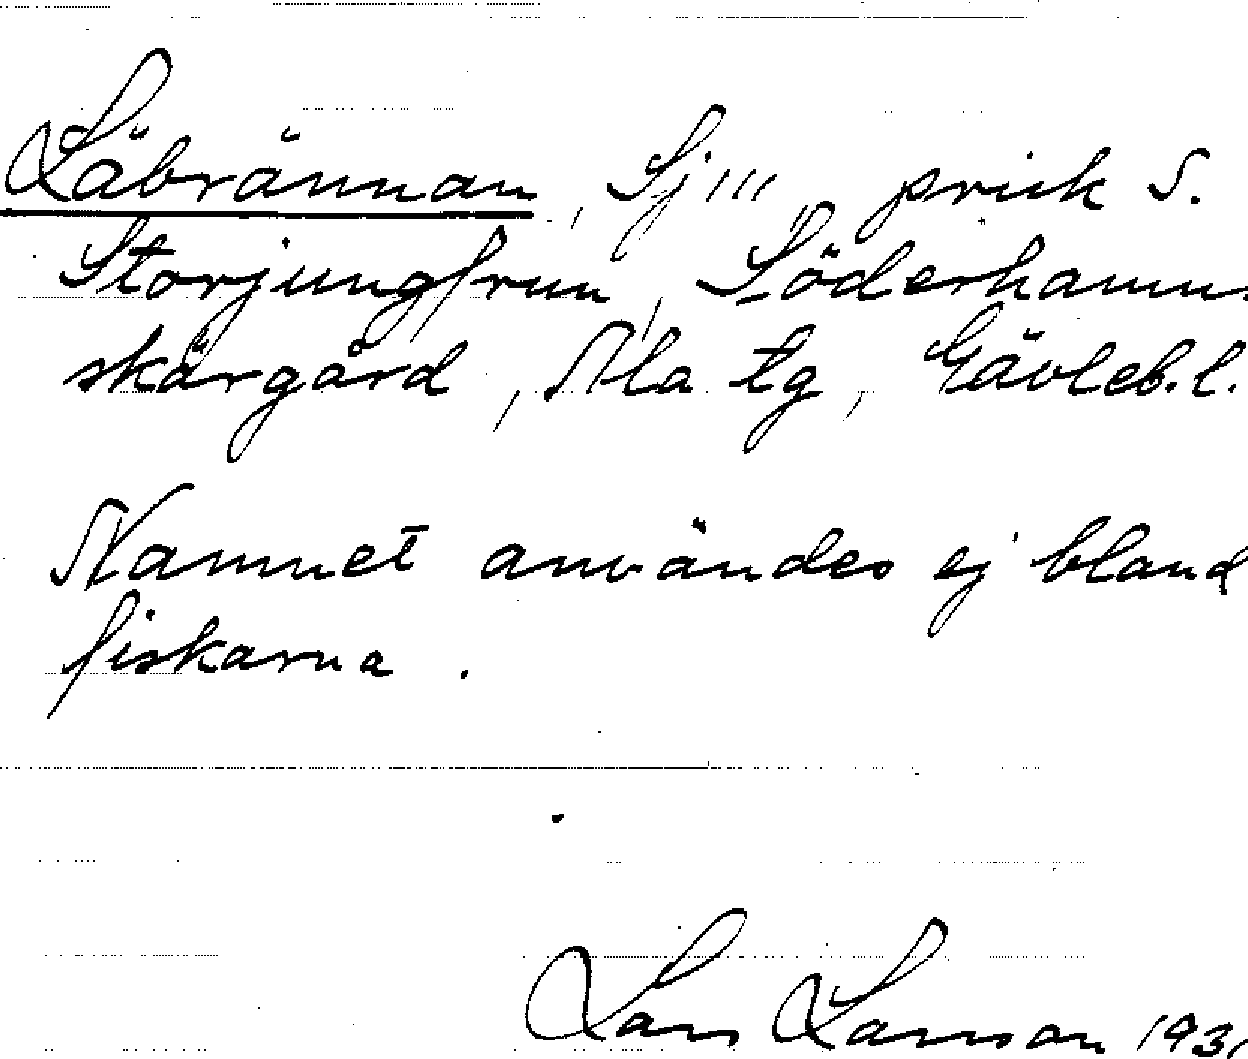 Läbrännan, Sj''', prick S.
Storjungfrun, Söderhamns
skärgård, Ala tg, Gävleb. l.
Namnet användes ej bland
fiskarna.
Lars Larsson 1931